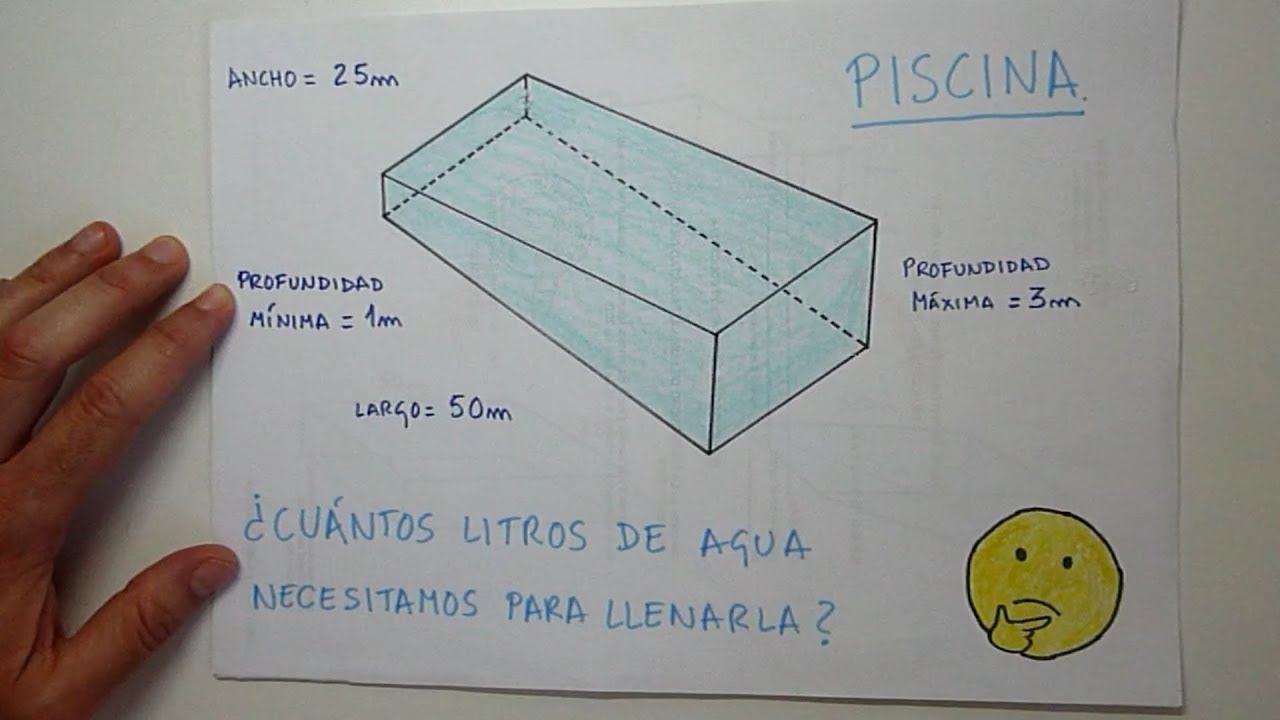 PISCINA.
ANCHO = 25m
PROFUNDIDAD
MÍNIMA = 1m
PROFUNDIDAD
MÁXIMA = 3m
LARGO = 50m
¿CUÁNTOS LITROS DE AGUA
NECESITAMOS PARA LLENARLA?